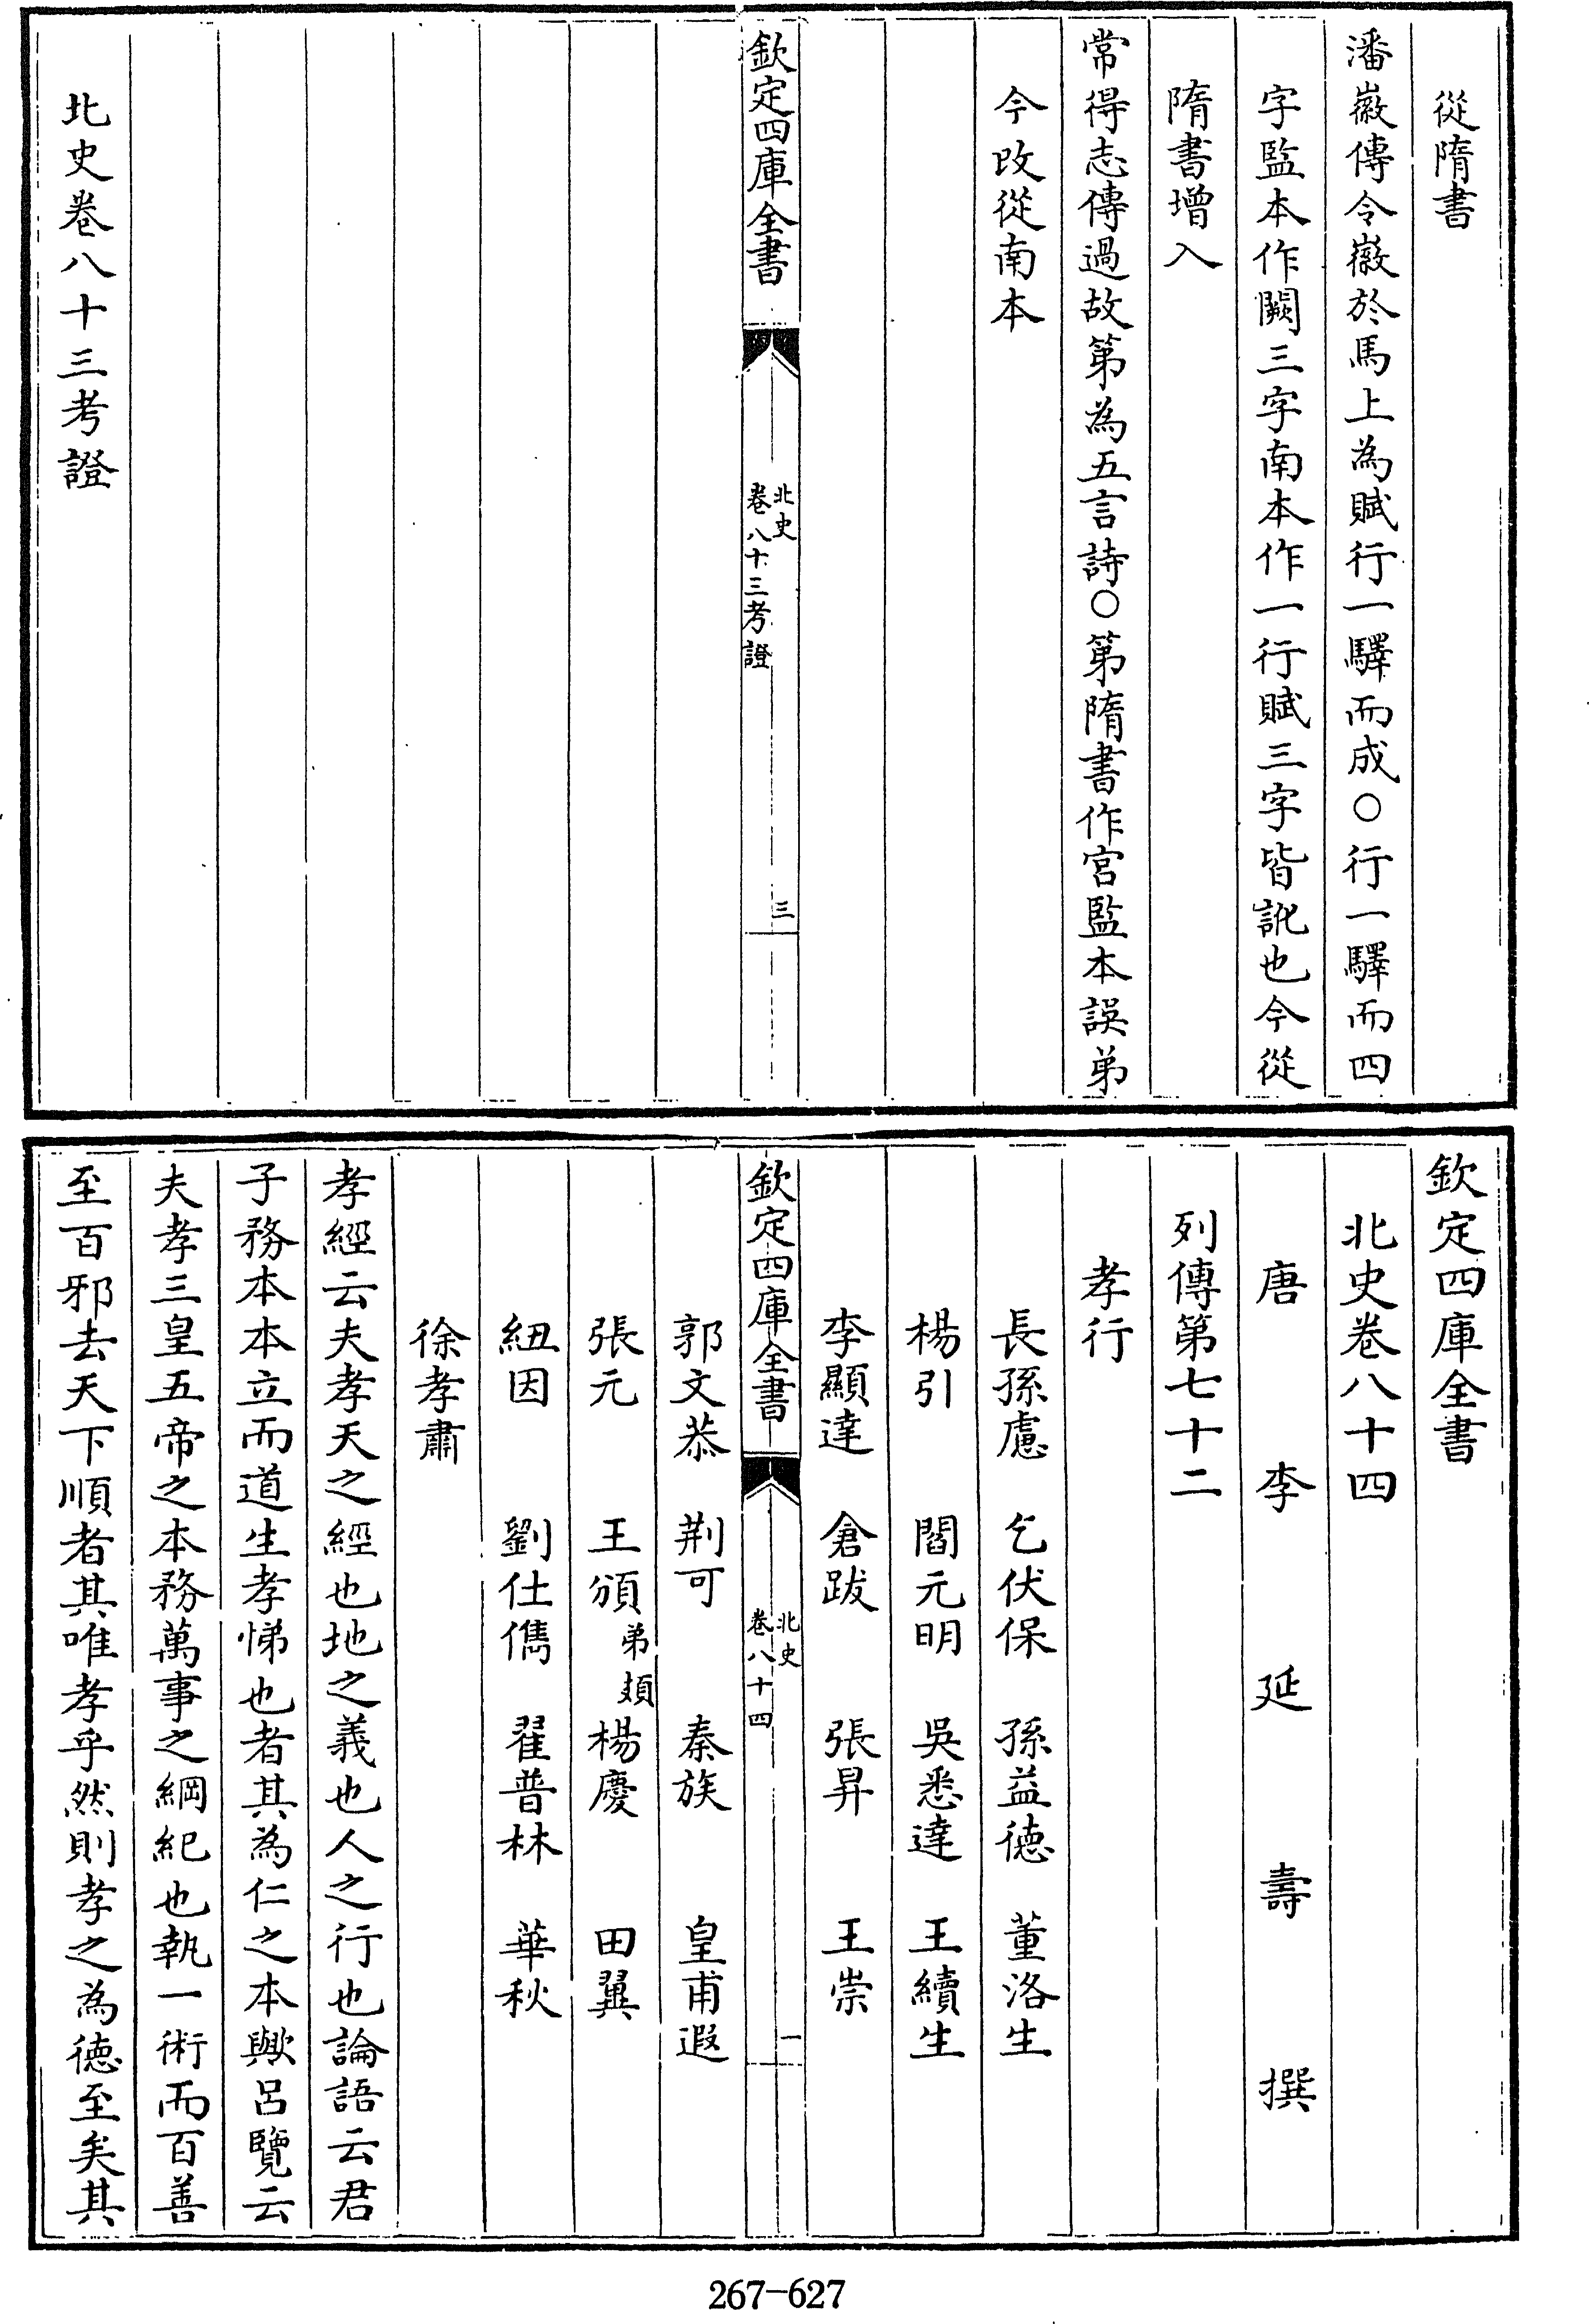 從隋書
潘徽傳令徽於馬上為賦行一驛而成○行一驛而四
字監本作闕三字南本作一行賦三字皆訛也今從
隋書增入
常得志傳過故第為五言詩○第隋書作宮監本誤弟
今改從南本
欽定四庫全書
北史
卷八十三考證
三
北史卷八十三考證
欽定四庫全書
北史卷八十四
唐 李 延 壽 撰
列傳第七十二
孝行
長孫慮 乞伏保 孫益德 董洛生
楊引 閻元明 吳悉達 王續生
李顯達 倉跋 張昇 王崇
欽定四庫全書
北史
卷八十四
一
郭文恭 荆可 秦族 皇甫遐
張元 王頒弟頍 楊慶 田翼
紐因 劉仕儁 翟普林 華秋
徐孝肅
孝經云夫孝天之經也地之義也人之行也論語云君
子務本本立而道生孝悌也者其為仁之本歟呂覽云
夫孝三皇五帝之本務萬事之綱紀也執一術而百善
至百邪去天下順者其唯孝乎然則孝之為德至矣其
267-627